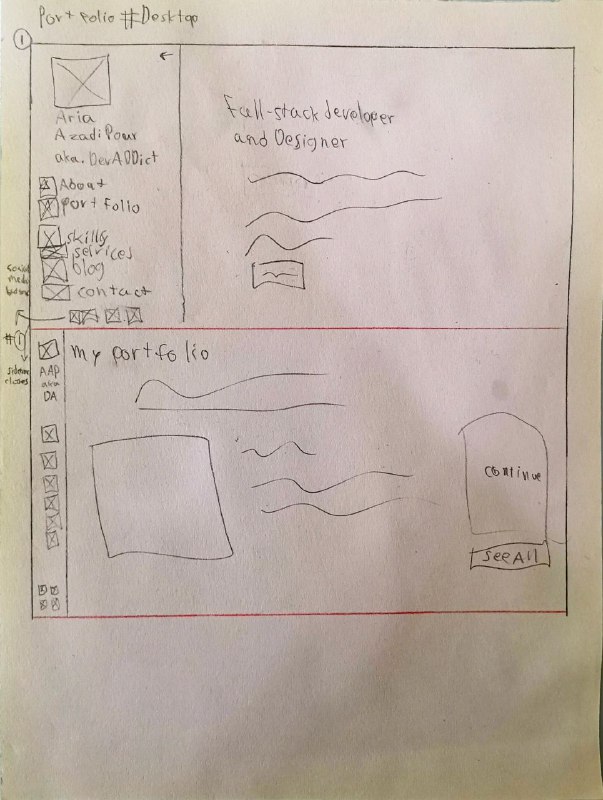 Portfolio #Desktop
1
Aria
AzadiPour
aka. DevADDict
About
Portfolio
skills
services
blog
contact
social
media
buttons
Full-stack developer
and Designer
#1
sidebar
closes
AAP
aka
DA
my portfolio
continue
see All